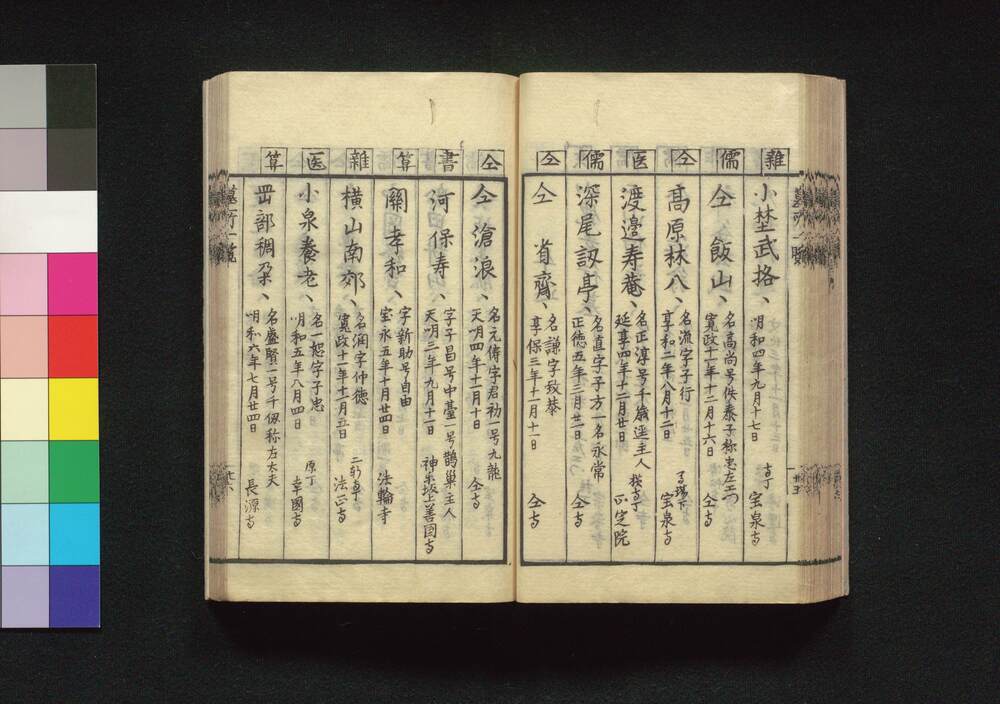 雑
小埜武格、
明和四年九月十七日
寺丁 宝泉寺
儒
仝 飯山、
名高尚号佚
寛政十一年十二月十六日
仝寺
仝
髙原林八、
名流字子行
享和二年八月十二日
宝泉寺
医
渡邉寿菴、
名正淳号千歳逕主人
延享四年十二月廿日
正定院
儒
深尾訒亭、
名直字子方一名永常
正徳五年三月廿一日
仝寺
仝
仝 省齊、
名謙字致恭
享保三年十二月十一日
仝寺
仝
仝 滄浪、
名元俦字君初一号九龍
天明四年十二月十日
仝寺
書
河保寿、
字子昌号中臺一号鵲巣主人
天明三年九月十一日
神楽坂上善国寺
算
關孝和、
字新助号自由
宝永五年十月廿四日
法輪寺
雜
横山南郊、
名潤字仲徳
寛政十一年十二月五日
法正寺
医
小泉養老、
名一恕字子忠
明和五年八月四日
原丁 幸國寺
算
岡部稠朶、
名盛賢一号千仭称左太夫
明和六年七月廿四日
長源寺
墓所一覧